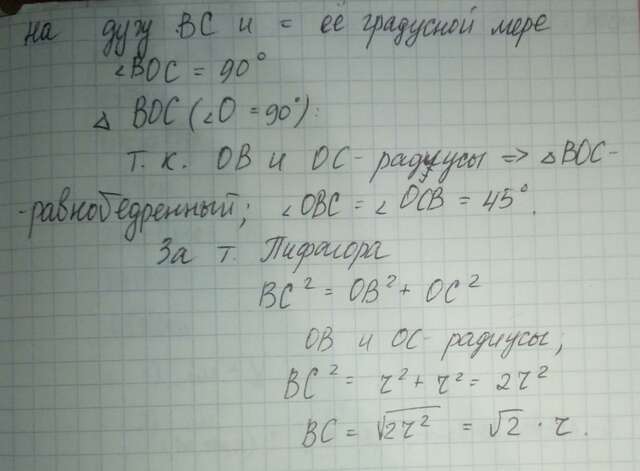 на дугу BC и = её градусной мере
∠BOC = 90°
△ BOC (∠O = 90°):
т. к. OB и OC - радиусы => △BOC -
- равнобедренный; ∠OBC = ∠OCB = 45°.
За т. Пифагора
BC² = OB² + OC²
OB и OC - радиусы;
BC² = r² + r² = 2r²
BC = √2r² = √2 · r.